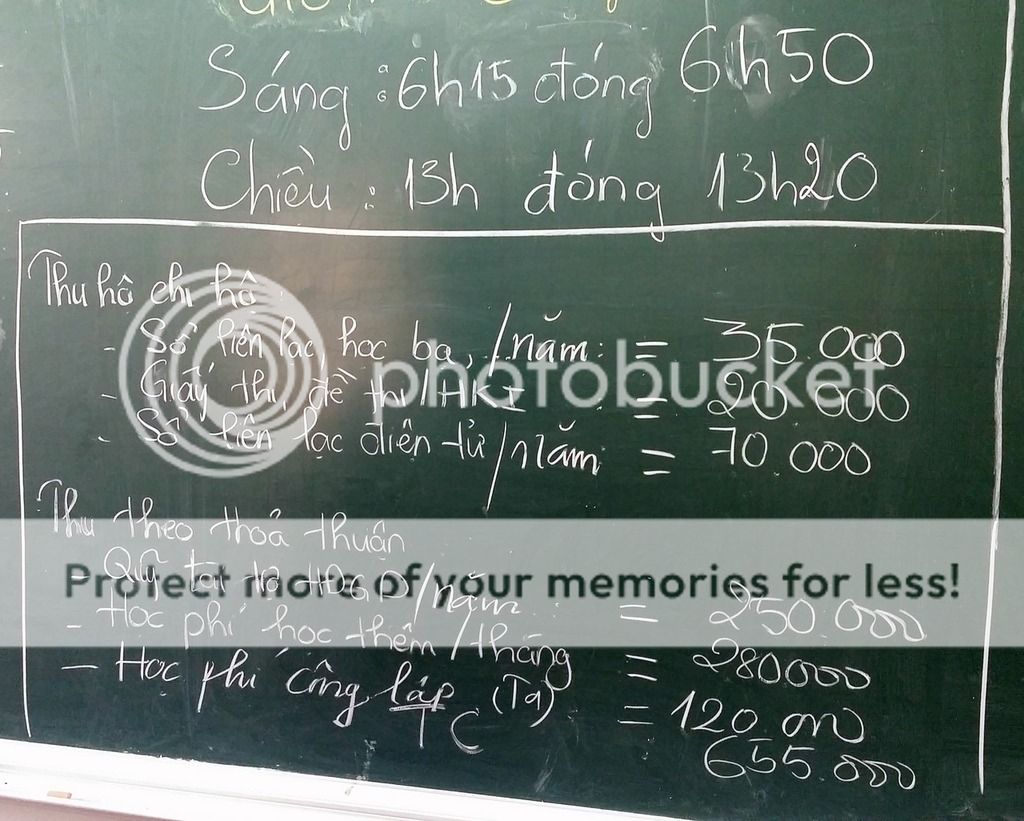 Sáng : 6h15 đóng 6h50
Chiều : 13h đóng 13h20
Thu hộ chi hộ :
- Sổ liên lạc, học bạ, /năm : = 35.000
- Giấy thi, đề thi /HKI = 20 000
- Sổ liên lạc điện tử /năm = 70 000
Thu theo thoả thuận
- Quỹ tài trợ /năm = 250.000
- Học phí học thêm /tháng = 280000
- Học phí công lập (Ta) = 120.000
TC 655.000
photobucket
Protect more of your memories for less!